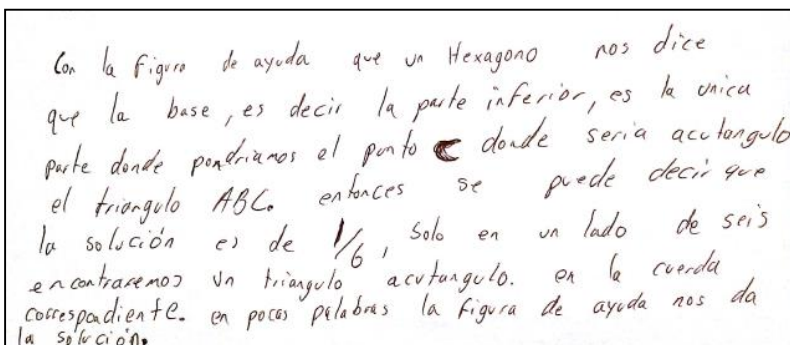 Con la figura de ayuda que un Hexagono nos dice
que la base, es decir la parte inferior, es la unica
parte donde pondriamos el punto C donde seria acutangulo
el triangulo ABC. entonces se puede decir que
la solución es de 1/6, solo en un lado de seis
encontraremos un triangulo acutangulo. en la cuerda
correspondiente. en pocas palabras la figura de ayuda nos da
la solución.